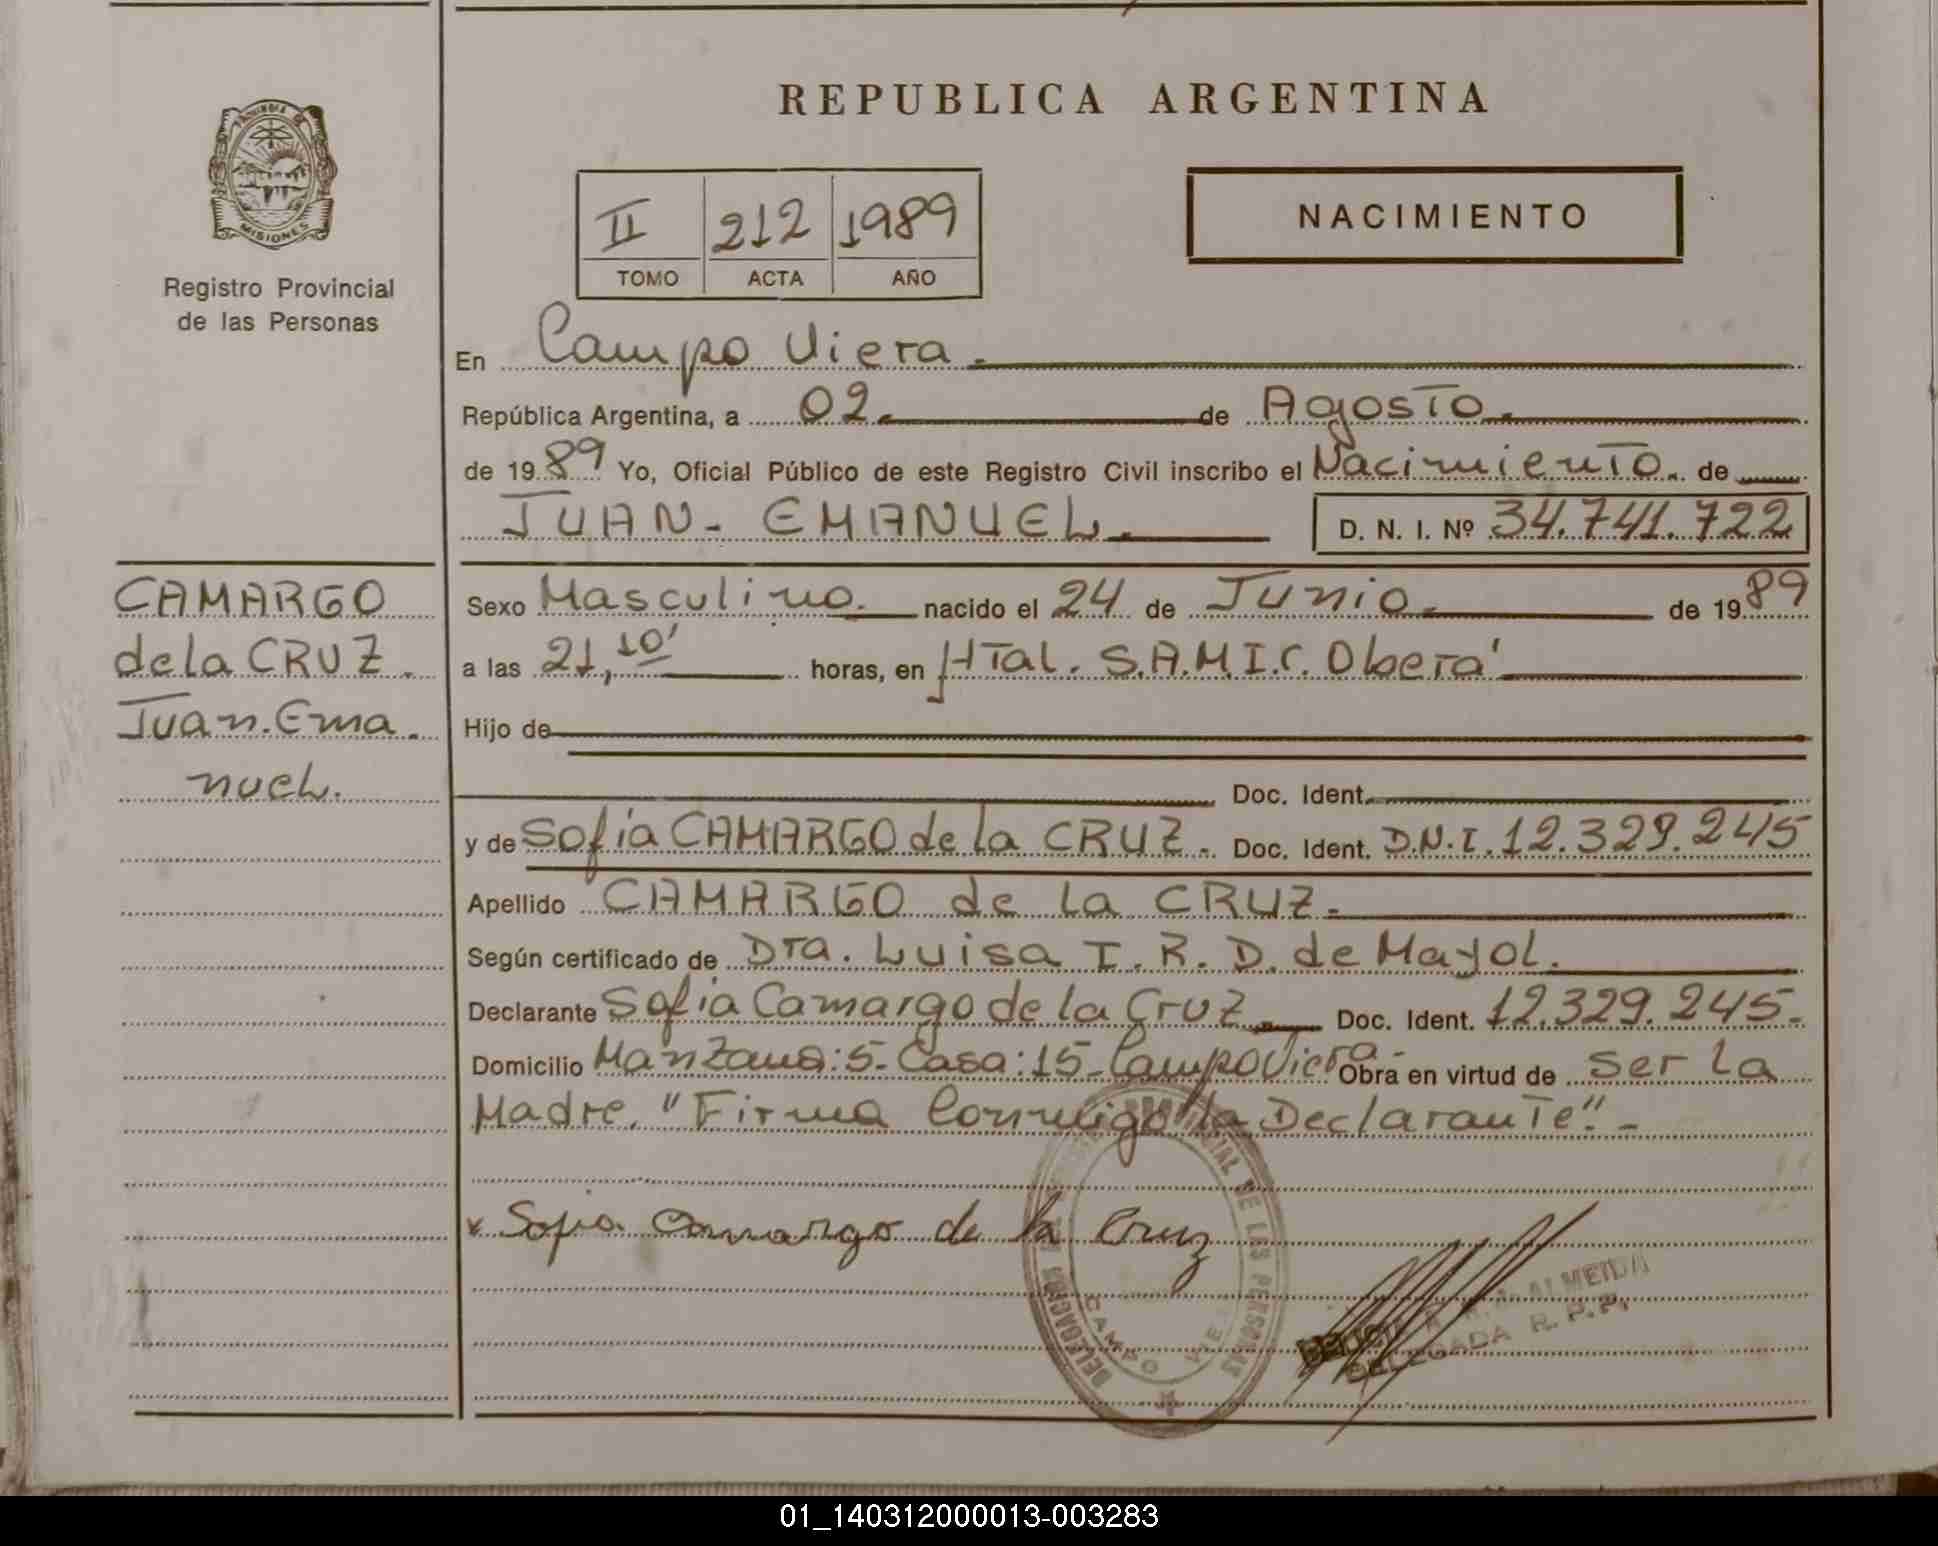 REPUBLICA ARGENTINA
PROVINCIA DE
MISIONES
Registro Provincial
de las Personas
II 212 1989
TOMO ACTA AÑO
NACIMIENTO
En Campo Viera.
República Argentina, a 02. de Agosto.
de 1989 Yo, Oficial Público de este Registro Civil inscribo el Nacimiento. de
JUAN - EMANUEL. D. N. I. Nº 34.741.722
CAMARGO
de la CRUZ.
Juan. Ema.
nuel.
Sexo Masculino. nacido el 24 de Junio. de 1989
a las 21,10' horas, en Htal. S.A.M.I.C. Oberá
Hijo de
Doc. Ident.
y de Sofía CAMARGO de la CRUZ. Doc. Ident. D.N.I. 12.329.245
Apellido CAMARGO de la CRUZ.
Según certificado de Dra. Luisa I. R. D. de Mayol.
Declarante Sofia Camargo de la Cruz. Doc. Ident. 12.329.245.
Domicilio Manzana: 5- Casa: 15- Campo Viera- Obra en virtud de ser la
Madre. "Firma Conmigo la Declarante".-
Sofia Camargo de la Cruz
DELEGACION DE LAS PERSONAS
CAMPO
ALMEIDA
DELEGADA R. P. P.
01_140312000013-003283